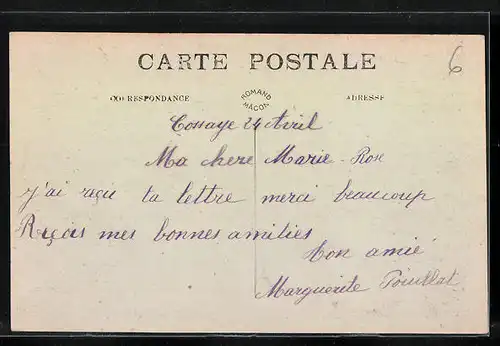 6
CARTE POSTALE
CORRESPONDANCE ROMAND MACON ADRESSE
Cossaye 24 Avril
Ma chere Marie-Rose
j'ai raçu ta lettre merci beaucoup
Reçois mes bonnes amitiés
ton amie
Marguerite